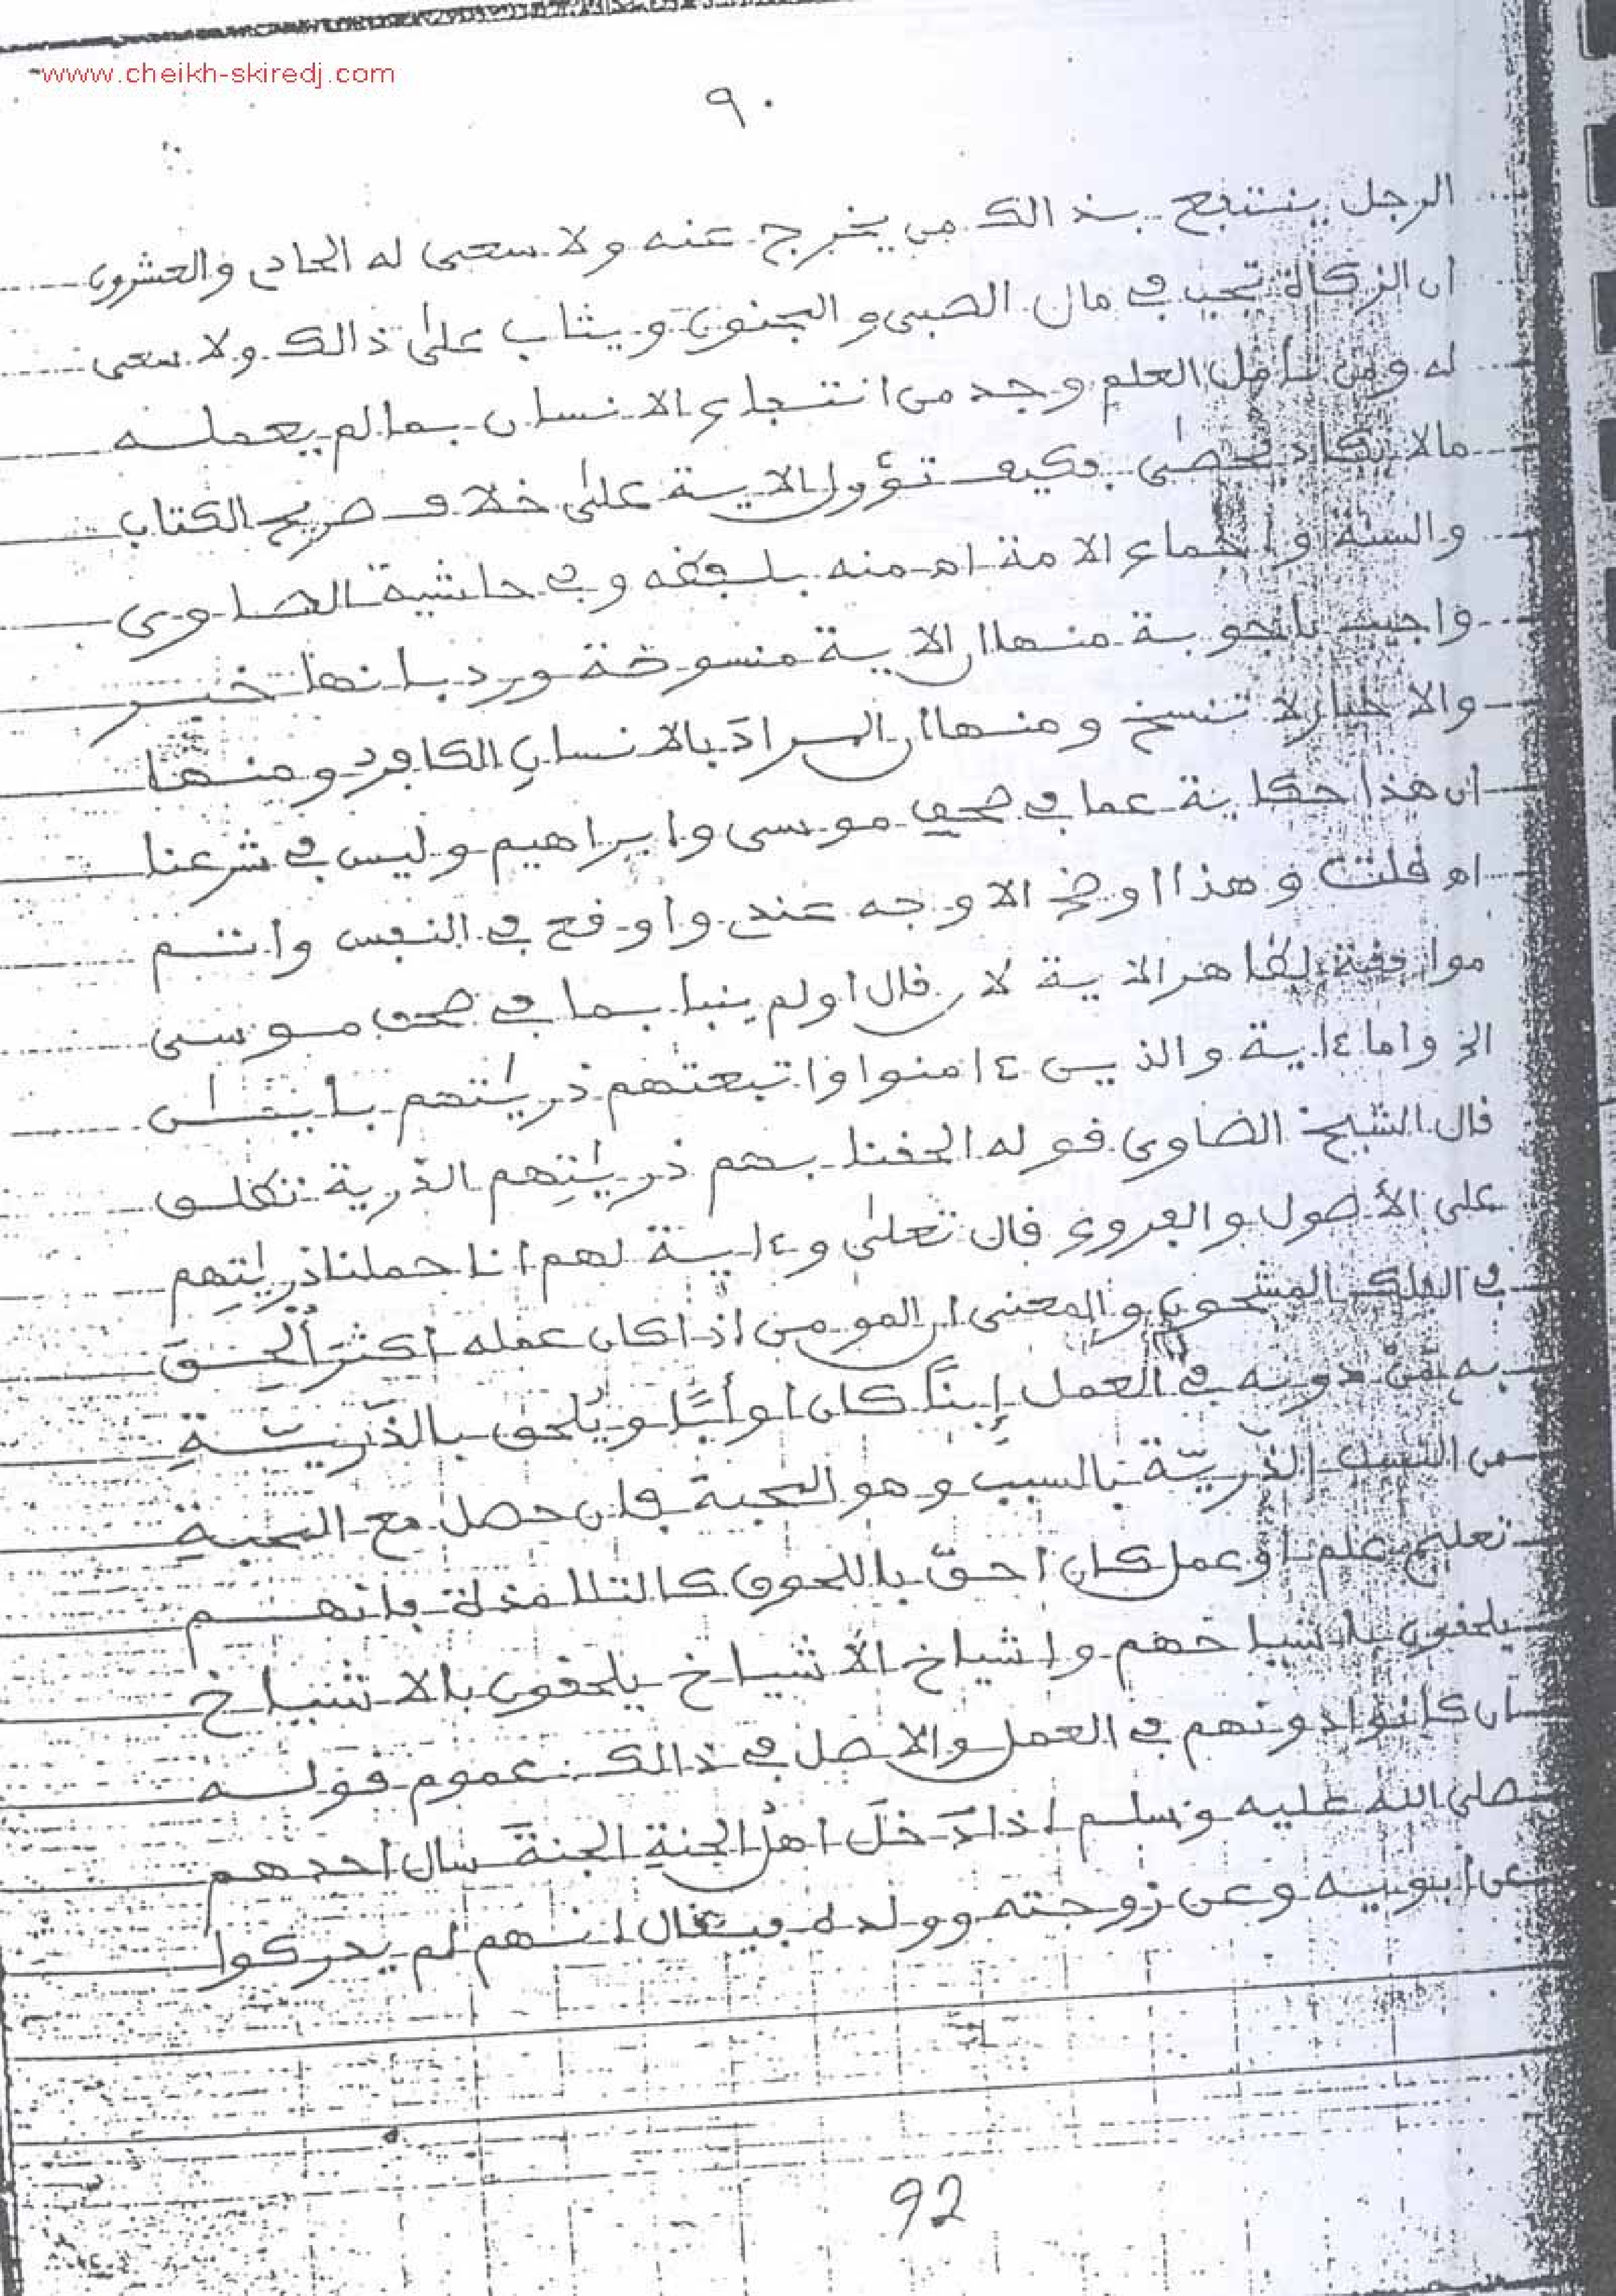 www.cheikh-skiredj.com
٩٠
الرجل ينتفع بذالك من يخرج عنه ولا سعى له الحادي والعشرون
ان الزكاة تجب في مال الصبي والمجنون ويثاب على ذالك ولا سعى
له ومن تأمل العلم وجد من انتفاع الانسان بما لم يعمله
مالا يكاد يحصى فكيف تؤول الاية على خلاف صريح الكتاب
والسنة واجماع الامة اه منه بلفظه وفي حاشية الصاوي
واجيب باجوبة منها ان الاية منسوخة ورد بانها خبر
والاخبار لا تنسخ ومنها ان المراد بالانسان الكافر ومنها
ان هذا حكاية عما في صحف موسى وابراهيم وليس في شرعنا
اه قلت وهذا اوضح الاوجه عندي واوقع في النفس واتم
موافقة لظاهر الاية لان قال اولم ينبا بما في صحف موسى
الخ واما ءاية والذين ءامنوا واتبعتهم ذريتهم بايمان
قال الشيخ الصاوي قوله الحقنا بهم ذريتهم الذرية تطلق
على الأصول والفروع قال تعلى وءاية لهم انا حملنا ذريتهم
في الفلك المشحون والمعنى ان المومن اذا كان عمله اكثر ألحق
به من دونه في العمل إبنًا كان او أبًا ويُلحق بالذرية
من النسب الذرية بالسبب وهو المحبة فان حصل مع المحبة
تعليم علم او عمل كان احق باللحوق كالتلامذة فانهم
يلحقون باشياخهم واشياخ الأشياخ يلحقون بالاشياخ
ان كانوا دونهم في العمل والاصل في ذالك عموم قوله
صلى الله عليه وسلم اذا دَخلَ اهلُ الجنةِ الجنةَ سال احدهم
عن ابويه وعن زوجته وولده فيقال انهم لم يدركوا
92